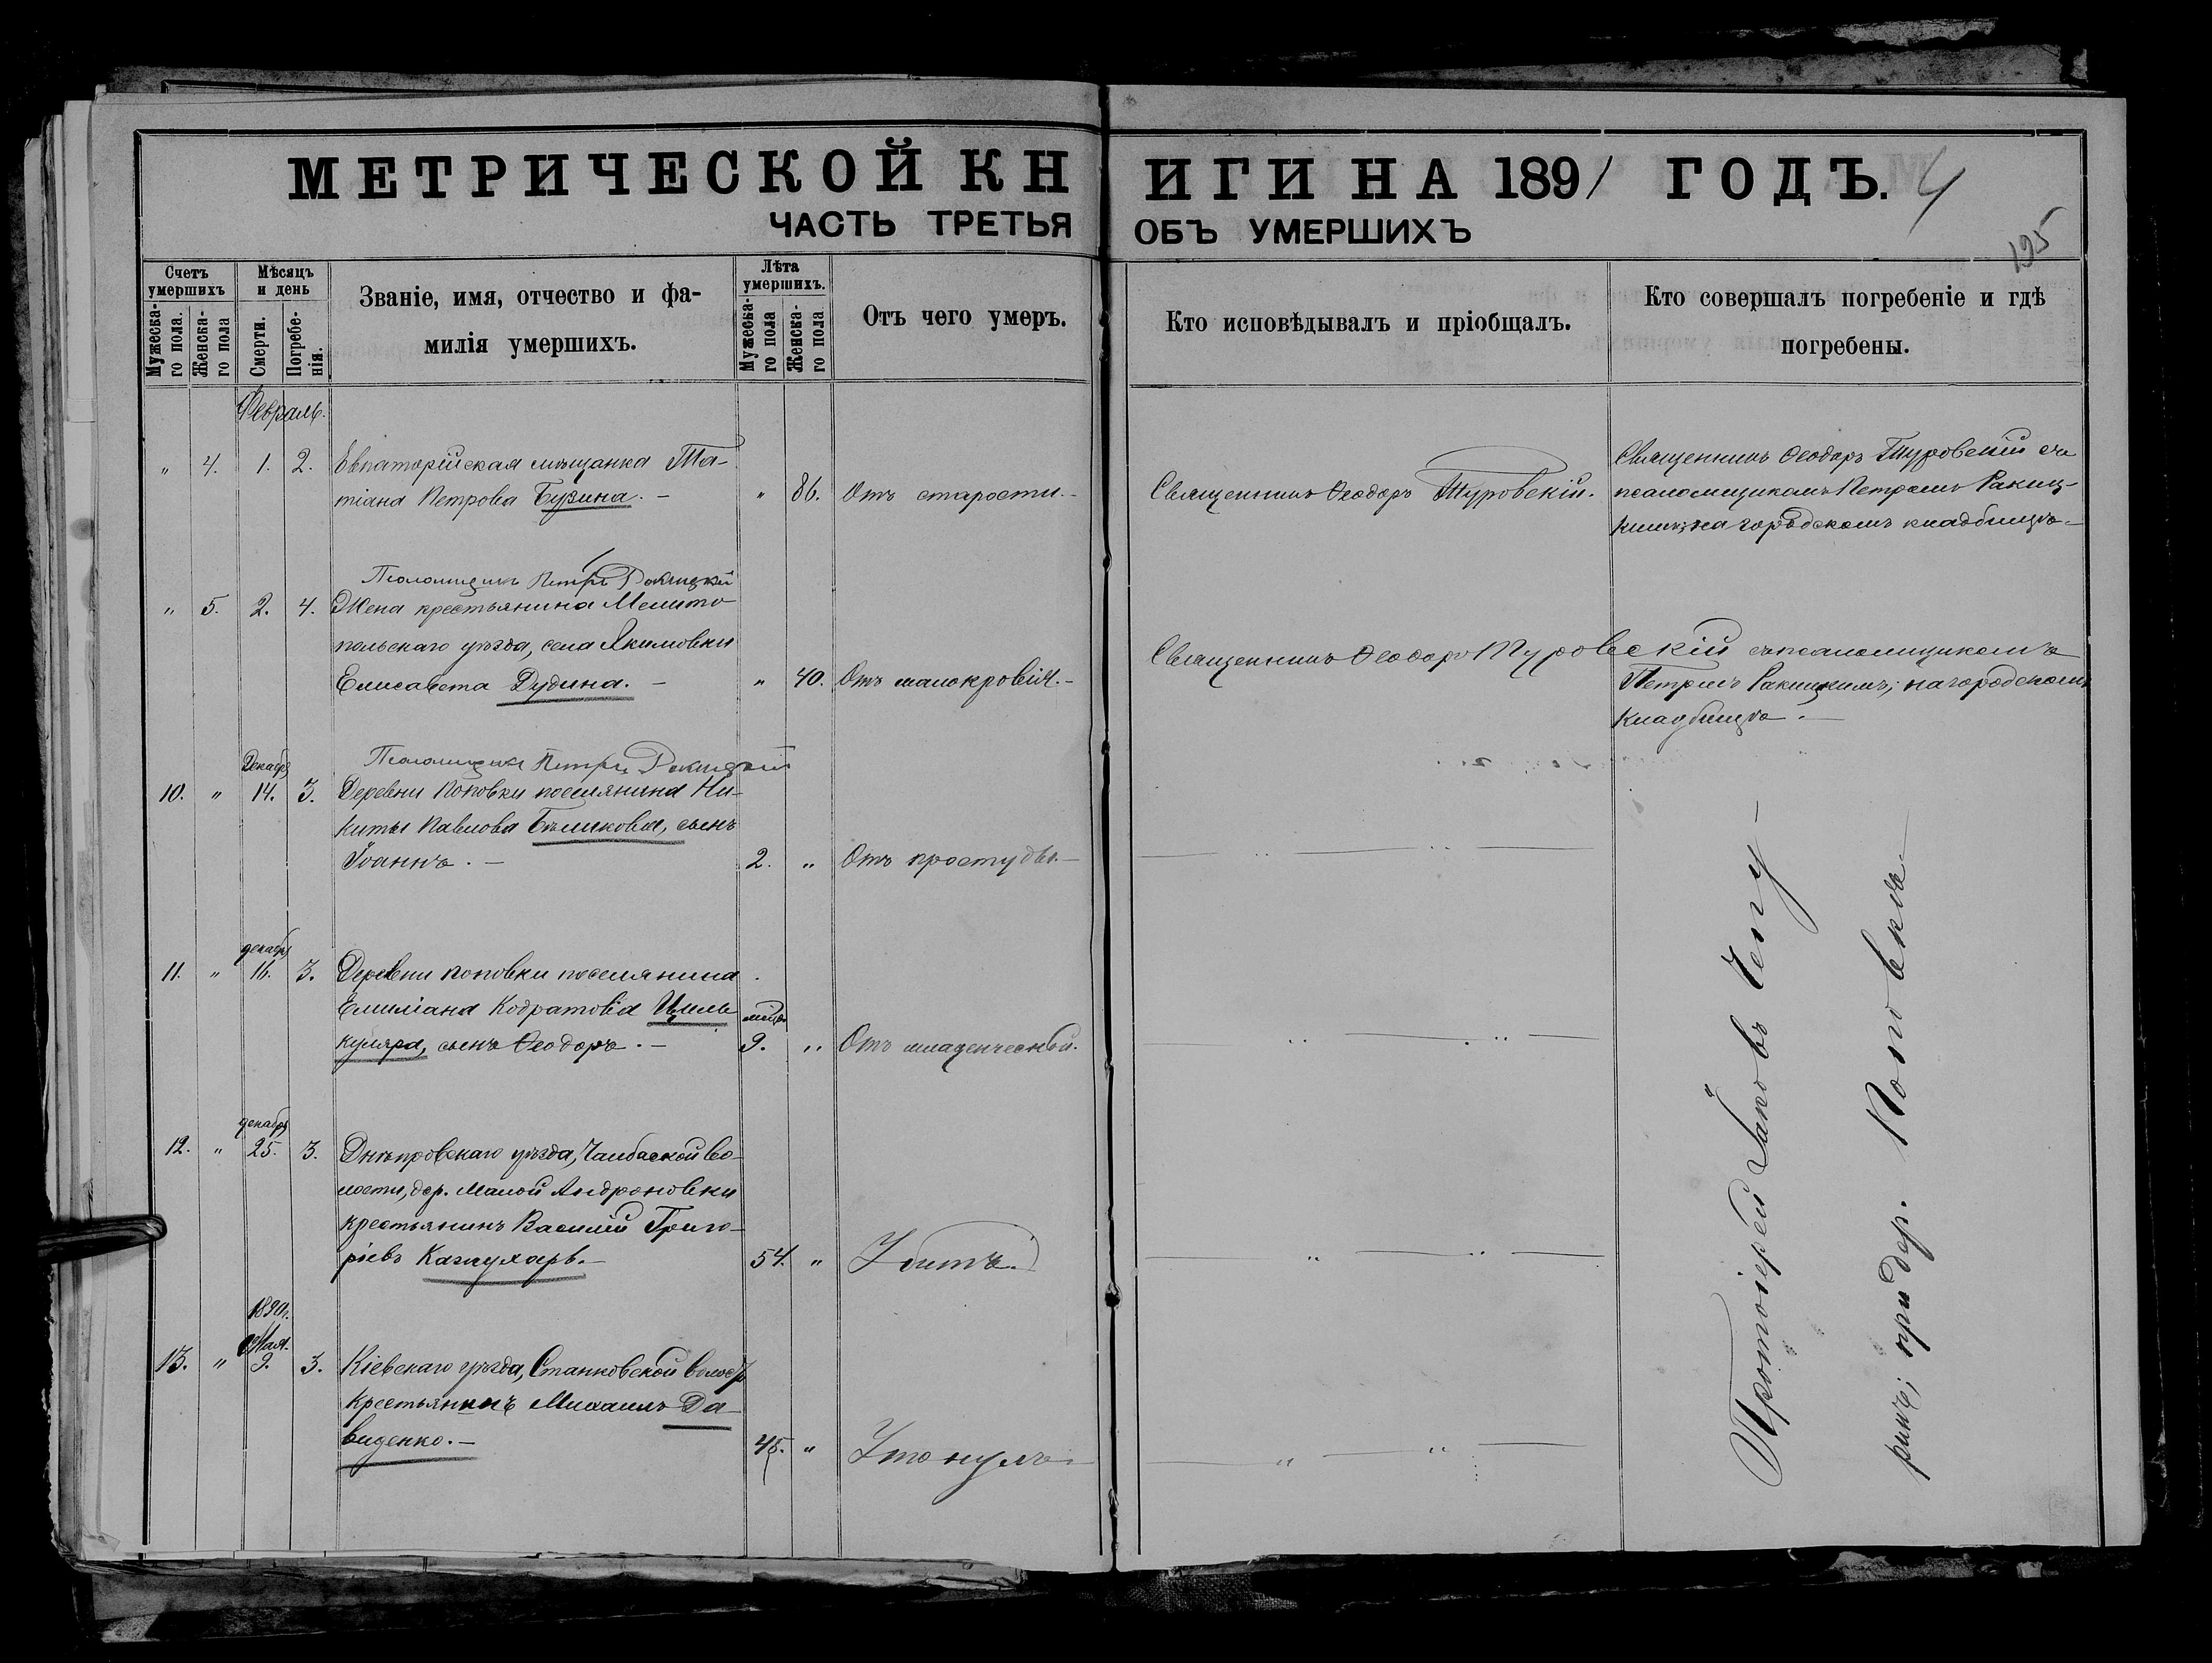 МЕТРИЧЕСКОЙ КНИГИ НА 1891 ГОДЪ. 4
ЧАСТЬ ТРЕТЬЯ ОБЪ УМЕРШИХЪ
195
Счетъ умершихъ
Мужеска-го пола.
Женска-го пола
Мѣсяцъ и день
Смерти.
Погребе-нія.
Званіе, имя, отчество и фа-
милія умершихъ.
Лѣта умершихъ.
Мужеска-го пола
Женска-го пола
Отъ чего умеръ.
Кто исповѣдывалъ и пріобщалъ.
Кто совершалъ погребеніе и гдѣ
погребены.
Февраль.
" 4. 1. 2. Евпаторійская мѣщанка Та-
тіана Петрова Бузина. - " 86. Отъ старости. -
Священникъ Ѳеодоръ Туровскій.
Священникъ Ѳеодоръ Туровскій съ
псаломщикомъ Петромъ Ракиц-
кимъ; на городскомъ кладбищѣ. -
Псаломщикъ Петръ Ракицкій
" 5. 2. 4. Жена крестьянина Мелито
польскаго уѣзда, села Якимовки
Елисавета Дудина. - " 40. Отъ малокровія. -
Священникъ Ѳеодоръ Туровскій съ псаломщикомъ
Петромъ Ракицкимъ; на городскомъ
кладбищѣ. -
Псаломщикъ Петръ Ракицкій
Декабр
10. " 14. 3. Деревни Поповки поселянина Ни-
киты Павлова Бѣликова, сынъ
Іоаннъ. - 2. " Отъ простуды. -
декабр
11. " 16. 3. Деревни Поповки поселянина
Емиліана Кодратовіа
сынъ Ѳеодоръ. - 9. " Отъ младенческой.
декабр
12. " 25. 3. Днѣпровскаго уѣзда, Чалбаской во-
лости, дер. Малой Андроновки
крестьянинъ Василій Григо-
ріевъ 54. " Убитъ.
1890г.
Мая.
13. " 9. 3. Кіевскаго уѣзда, Станковской волост
крестьянинъ Михаилъ Да
виденко. - 45. " Утонулъ
Протоіерей Іаковъ Чепу -
ринъ; при дер. Поповкѣ